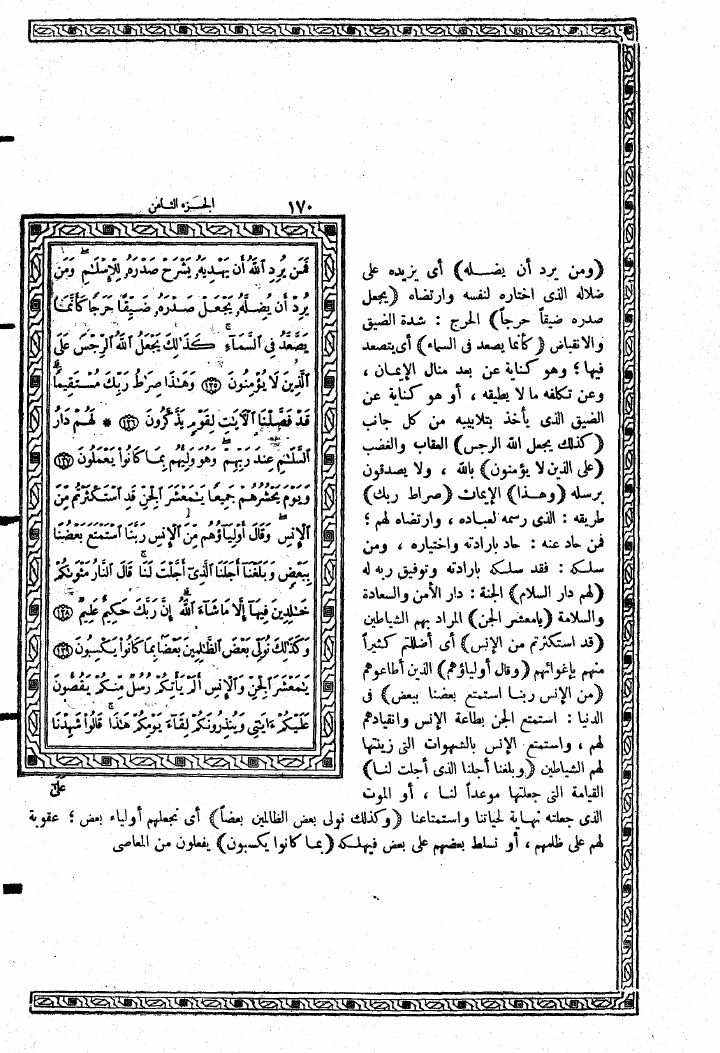 ١٧٠
الجزء الثامن
(ومن يرد أن يضله) أى يزيده على
ضلاله الذى اختاره لنفسه وارتضاه (يجعل
صدره ضيقاً حرجاً) الحرج : شدة الضيق
والانقباض (كأنما يصعد فى السماء) أى يتصعد
فيها ؛ وهو كناية عن بعد منال الإيمان ،
وعن تكلفه ما لا يطيقه ، أو هو كناية عن
الضيق الذى يأخذ بتلابيبه من كل جانب
(كذلك يجعل الله الرجس) العقاب والغضب
(على الذين لا يؤمنون) بالله ، ولا يصدقون
برسله (وهذا) الإيمان (صراط ربك)
طريقه : الذى رسمه لعباده ، وارتضاه لهم ؛
فمن حاد عنه : حاد بارادته واختياره ، ومن
سلكه : فقد سلكه بارادته وتوفيق ربه له
(لهم دار السلام) الجنة : دار الأمن والسعادة
والسلامة (يامعشر الجن) المراد بهم الشياطين
(قد استكثرتم من الإنس) أى أضللتم كثيراً
منهم بإغوائهم (وقال أولياؤهم) الذين أطاعوهم
(من الإنس ربنا استمتع بعضنا ببعض) فى
الدنيا : استمتع الجن بطاعة الإنس وانقيادهم
لهم ، واستمتع الإنس بالشهوات التى زينتها
لهم الشياطين (وبلغنا أجلنا الذى أجلت لنا)
القيامة التى جعلتها موعداً لنا ، أو الموت
الذى جعلته نهاية لحياتنا واستمتاعنا (وكذلك نولى بعض الظالمين بعضاً) أى نجعلهم أولياء بعض ؛ عقوبة
لهم على ظلمهم ، أو نسلط بعضهم على بعض فيهلكه (بما كانوا يكسبون) يفعلون من المعاصى
فَمَن يُرِدِ ٱللَّهُ أَن يَهْدِيَهُۥ يَشْرَحْ صَدْرَهُۥ لِلْإِسْلَـٰمِ ۖ وَمَن
يُرِدْ أَن يُضِلَّهُۥ يَجْعَلْ صَدْرَهُۥ ضَيِّقًا حَرَجًا كَأَنَّمَا
يَصَّعَّدُ فِى ٱلسَّمَآءِ ۚ كَذَٰلِكَ يَجْعَلُ ٱللَّهُ ٱلرِّجْسَ عَلَى
ٱلَّذِينَ لَا يُؤْمِنُونَ ﴿١٢٥﴾ وَهَـٰذَا صِرَٰطُ رَبِّكَ مُسْتَقِيمًا ۗ
قَدْ فَصَّلْنَا ٱلْـَٔايَـٰتِ لِقَوْمٍ يَذَّكَّرُونَ ﴿١٢٦﴾ * لَهُمْ دَارُ
ٱلسَّلَـٰمِ عِندَ رَبِّهِمْ ۖ وَهُوَ وَلِيُّهُم بِمَا كَانُوا۟ يَعْمَلُونَ ﴿١٢٧﴾
وَيَوْمَ يَحْشُرُهُمْ جَمِيعًا يَـٰمَعْشَرَ ٱلْجِنِّ قَدِ ٱسْتَكْثَرْتُم مِّنَ
ٱلْإِنسِ ۖ وَقَالَ أَوْلِيَآؤُهُم مِّنَ ٱلْإِنسِ رَبَّنَا ٱسْتَمْتَعَ بَعْضُنَا
بِبَعْضٍ وَبَلَغْنَآ أَجَلَنَا ٱلَّذِىٓ أَجَّلْتَ لَنَا ۚ قَالَ ٱلنَّارُ مَثْوَىٰكُمْ
خَـٰلِدِينَ فِيهَآ إِلَّا مَا شَآءَ ٱللَّهُ ۗ إِنَّ رَبَّكَ حَكِيمٌ عَلِيمٌ ﴿١٢٨﴾
وَكَذَٰلِكَ نُوَلِّى بَعْضَ ٱلظَّـٰلِمِينَ بَعْضًۢا بِمَا كَانُوا۟ يَكْسِبُونَ ﴿١٢٩﴾
يَـٰمَعْشَرَ ٱلْجِنِّ وَٱلْإِنسِ أَلَمْ يَأْتِكُمْ رُسُلٌ مِّنكُمْ يَقُصُّونَ
عَلَيْكُمْ ءَايَـٰتِى وَيُنذِرُونَكُمْ لِقَآءَ يَوْمِكُمْ هَـٰذَا ۚ قَالُوا۟ شَهِدْنَا
عَلَىٰٓ